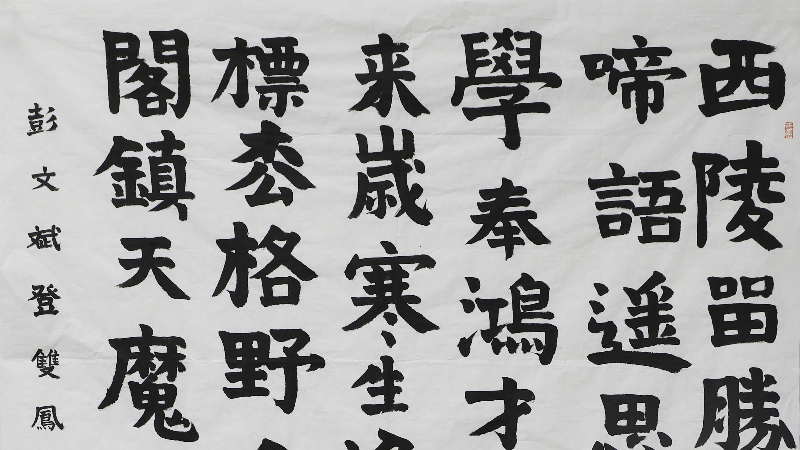 西陵㽞勝
啼語遥思
學奉鴻才
来嵗寒生
標枩格野
閣鎮天魔
彭文斌登雙鳳